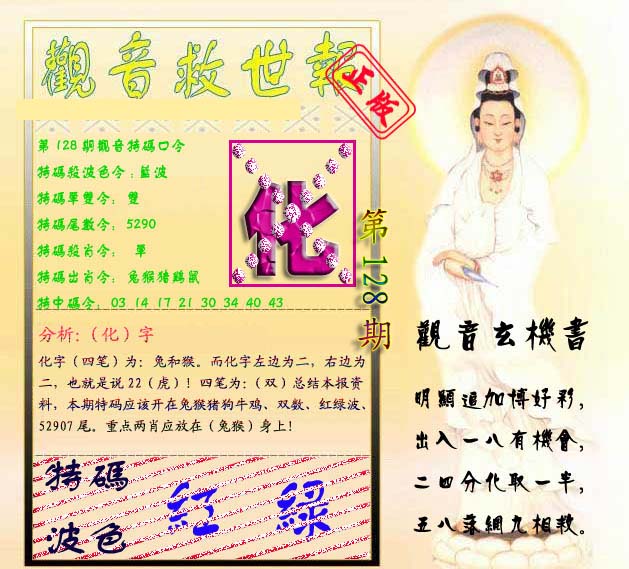 觀音救世報
正版
第128期觀音特碼口令
特碼殺波色令:藍波
特碼單雙令: 雙
特碼尾數令: 5290
特碼殺肖令: 單
特碼出肖令: 兔猴猪鷄鼠
特中碼令: 03 14 17 21 30 34 40 43
化
第128期
分析:（化）字
化字（四笔）为: 兔和猴。而化字左边为二，右边为
二，也就是说22（虎）！四笔为:（双）总结本报资
料，本期特码应该开在兔猴猪狗牛鸡、双数、红绿波、
52907尾。重点两肖应放在（兔猴）身上！
特碼
波色
紅 綠
觀音玄機書
明顯追加博好彩，
出入一八有機會，
二四分化取一半，
五八落網九相救。